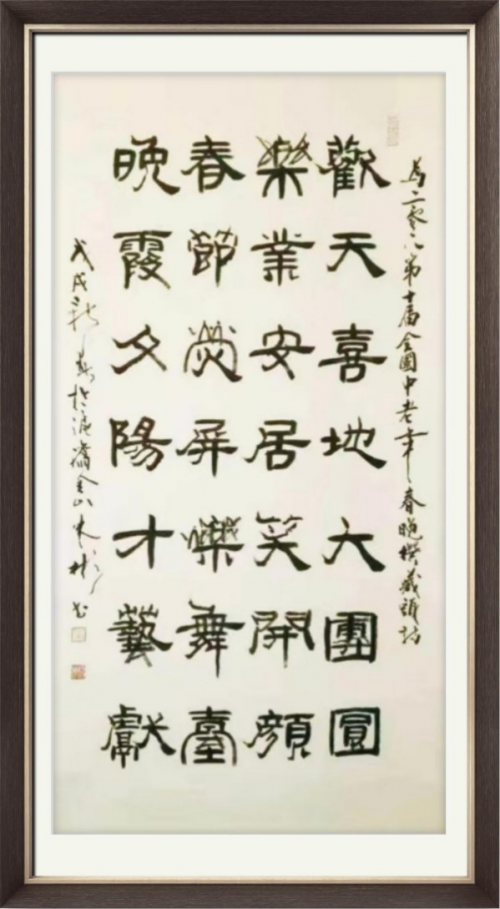 为二零一八第十届全國中老年春晚撰藏
歡天喜地大團圓
樂業安居笑開顔
春節熒屏爍舞臺
晚霞夕陽才藝獻
戊戌新春於滬金山